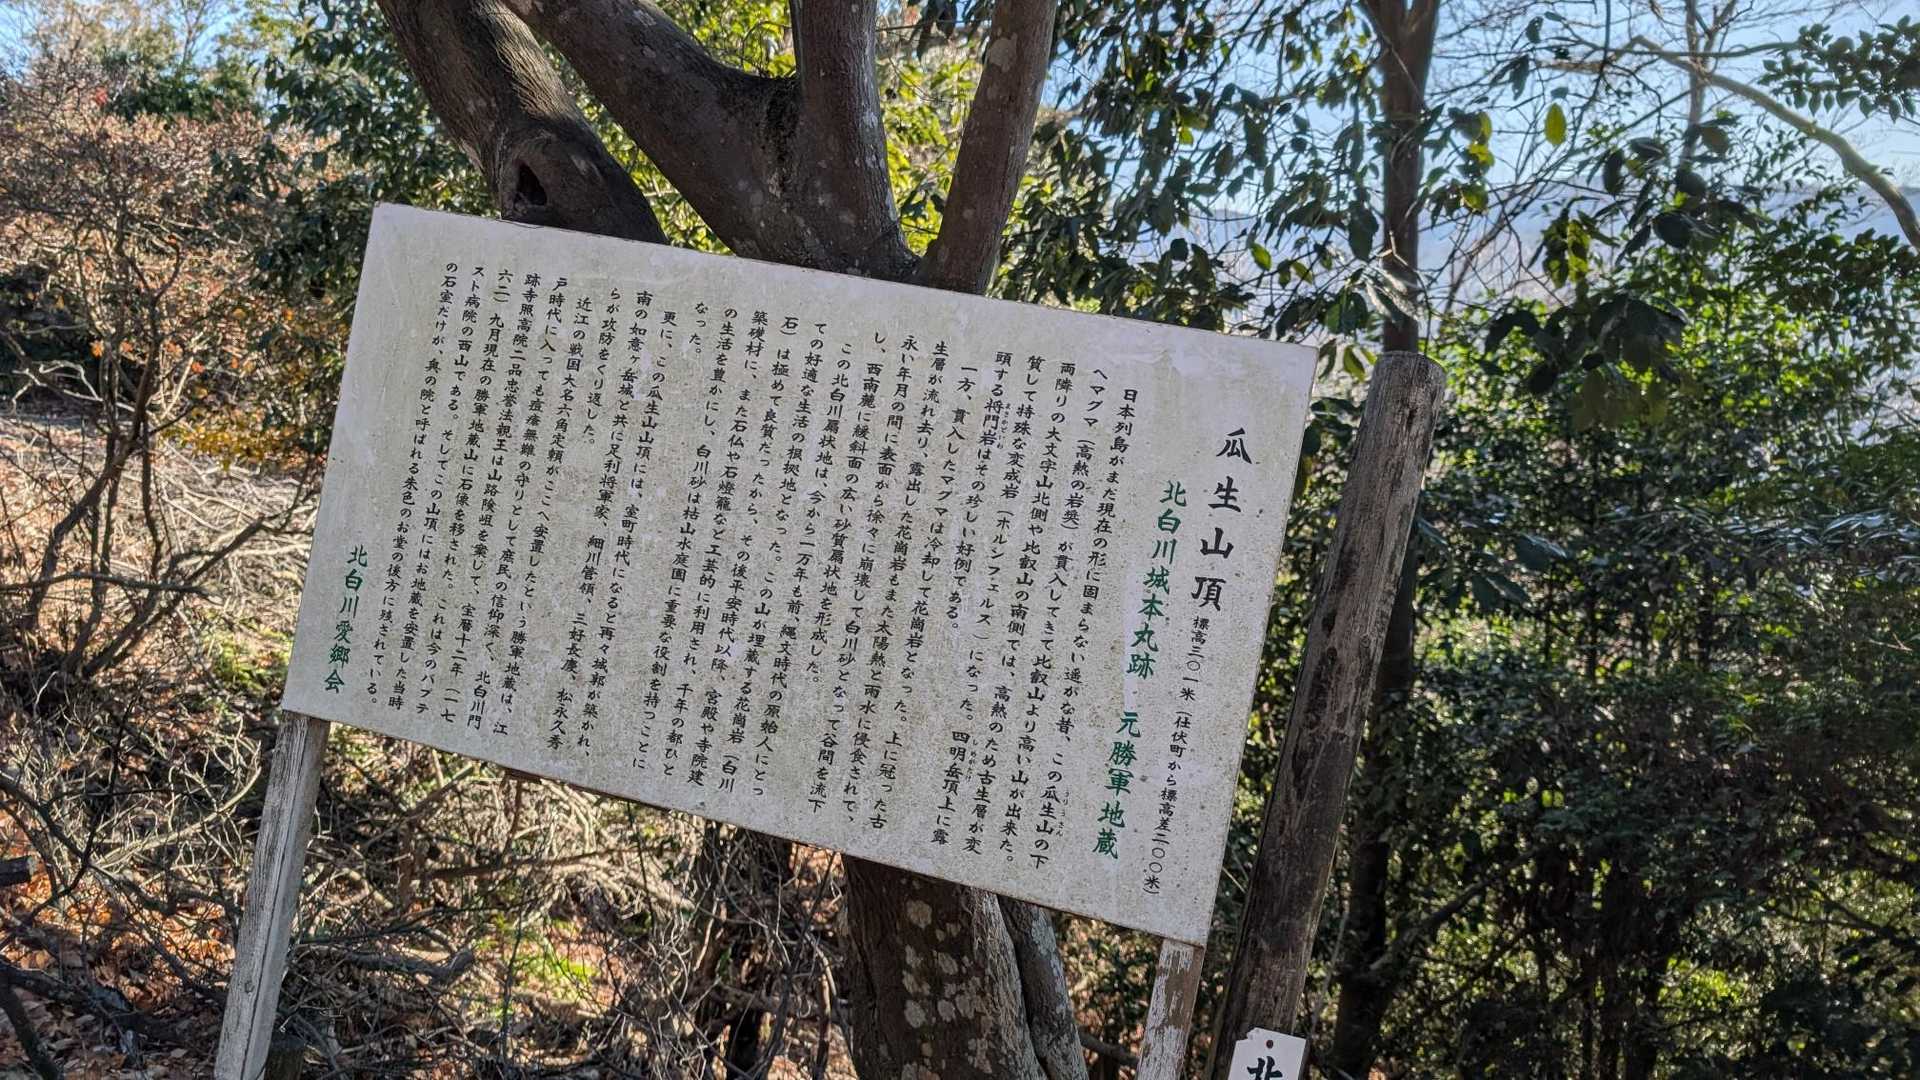 瓜生山頂 標高三〇一米(仕伏町から標高差二〇〇米)
北白川城本丸跡 元勝軍地蔵
日本列島がまだ現在の形に固まらない遥かな昔、この瓜生山の下
うりうさん
へマグマ(高熱の岩奬)が貫入してきて比叡山より高い山が出来た。
両隣りの大文字山北側や比叡山の南側では、高熱のため古生層が変
質して特殊な変成岩(ホルンフェルス)になった。四明岳頂上に露
しめがたけ
頭する将門岩はその珍しい好例である。
まさかどいわ
一方、貫入したマグマは冷却して花崗岩となった。上に冠った古
生層が流れ去り、露出した花崗岩もまた太陽熱と雨水に侵食されて、
永い年月の間に表面から徐々に崩壊して白川砂となって谷間を流下
し、西南麓に緩斜面の広い砂質扇状地を形成した。
この北白川扇状地は、今から一万年も前、縄文時代の原始人にとっ
ての好適な生活の根拠地となった。この山が埋蔵する花崗岩(白川
石)は極めて良質だったから、その後平安時代以降、宮殿や寺院建
築礎材に、また石仏や石燈籠など工芸的に利用され、千年の都びと
の生活を豊かにし、白川砂は枯山水庭園に重要な役割を持つことに
なった。
更に、この瓜生山山頂には、室町時代になると再々城郭が築かれ、
南の如意ヶ岳城と共に足利将軍家、細川管領、三好長慶、松永久秀
らが攻防をくり返した。
近江の戦国大名六角定頼がここへ安置したという勝軍地蔵は、江
戸時代に入っても痘瘡無難の守りとして庶民の信仰深く、北白川門
跡寺照高院二品忠誉法親王は山路険岨を案じて、宝暦十二年(一七
六二)九月現在の勝軍地蔵山に石像を移された。これは今のバプテ
スト病院の西山である。そしてこの山頂にはお地蔵を安置した当時
の石室だけが、奥の院と呼ばれる朱色のお堂の後方に残されている。
北白川愛郷会
北